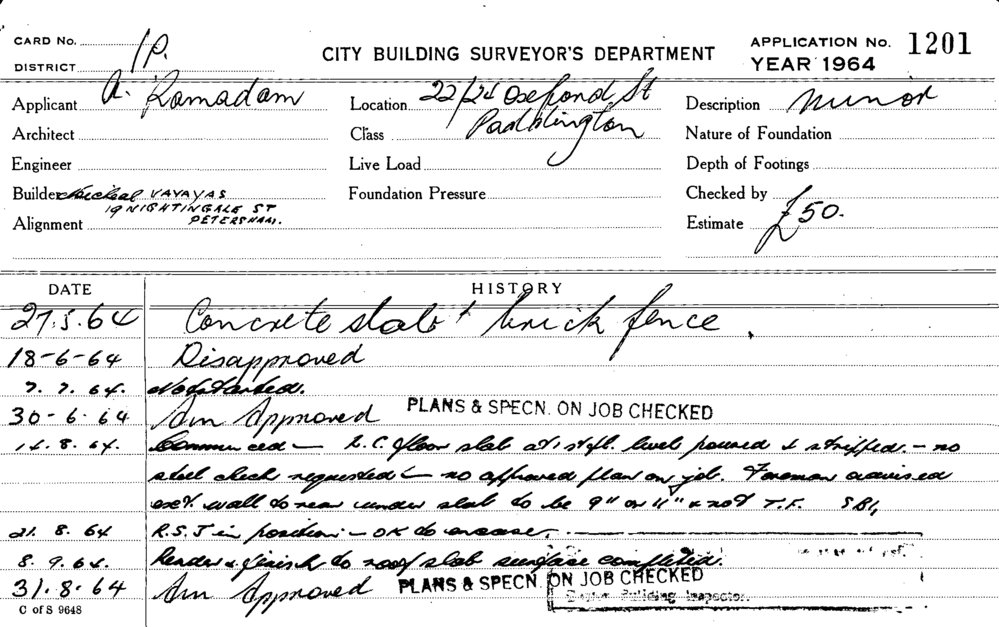 CARD No. 1P. CITY BUILDING SURVEYOR'S DEPARTMENT APPLICATION No. 1201
DISTRICT YEAR 1964
Applicant A. Ramadam Location 22/24 Oxford St Description Minor
Architect Class Paddington Nature of Foundation
Engineer Live Load Depth of Footings
Builder Micheal VAVAYAS Foundation Pressure Checked by
19 NIGHTINGALE ST
Alignment PETERSHAM. Estimate £50.
DATE HISTORY
27.5.64 Concrete slab + brick fence.
18-6-64 Disapproved
7.7.64. Not started.
30-6-64 Am Approved PLANS & SPECN. ON JOB CHECKED
14.8.64. Commenced - R.C. floor slab at 1st fl. level poured & stripped. - no
steel check requested - no approved plan on job. Foreman advised
ext wall to rear under slab to be 9" or 11" & not T.F. SBI,
21.8.64 R.S.J in position - OK to encase.
8.9.64. Render & finish to roof slab surface completed.
31.8.64 Am Approved PLANS & SPECN. ON JOB CHECKED
C of S 9648 Building Inspector.